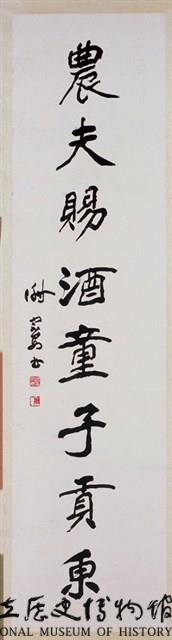 農夫賜酒童子貢
立歷史博物館
ONAL MUSEUM OF HISTORY